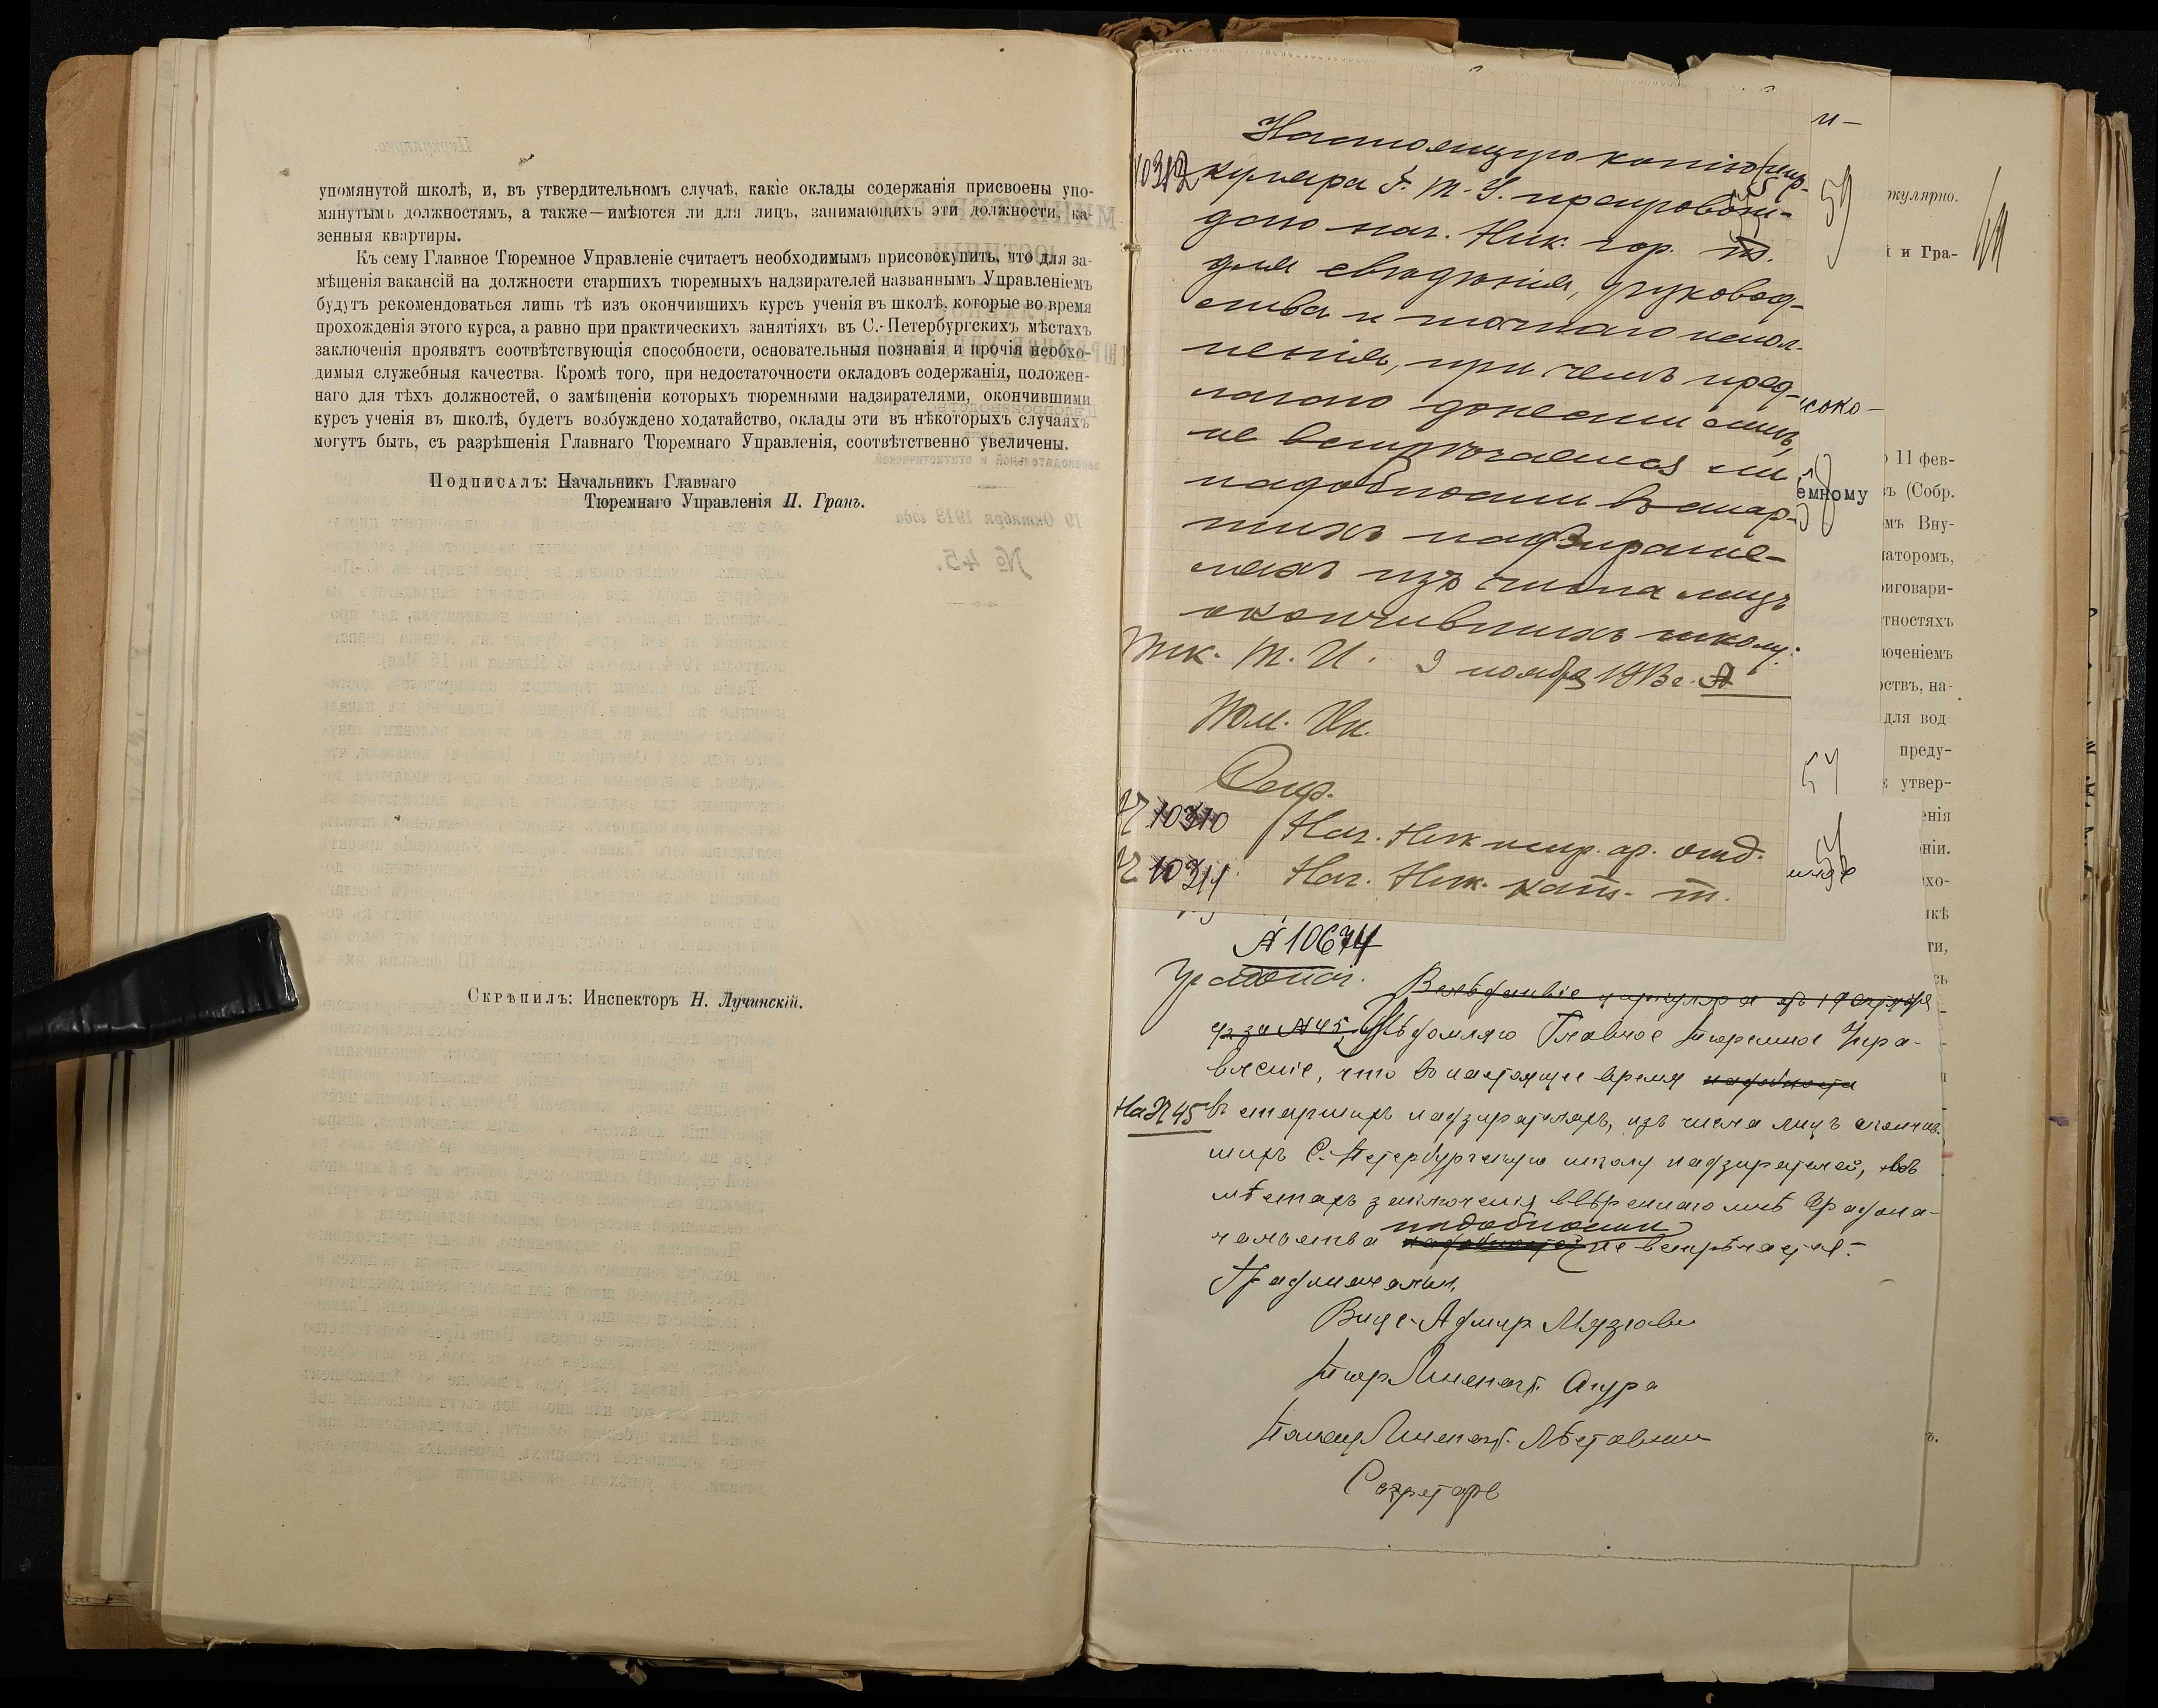 упомянутой школѣ, и, въ утвердительномъ случаѣ, какіе оклады содержанія присвоены упо-
мянутымъ должностямъ, а также—имѣются ли для лицъ, занимающихъ эти должности, ка-
зенныя квартиры.
Къ сему Главное Тюремное Управленіе считаетъ необходимымъ присовокупить, что для за-
мѣщенія вакансій на должности старшихъ тюремныхъ надзирателей названнымъ Управленіемъ
будутъ рекомендоваться лишь тѣ изъ окончившихъ курсъ ученія въ школѣ, которые во время
прохожденія этого курса, а равно при практическихъ занятіяхъ въ С.-Петербургскихъ мѣстахъ
заключенія проявятъ соотвѣтствующія способности, основательныя познанія и прочія необхо-
димыя служебныя качества. Кромѣ того, при недостаточности окладовъ содержанія, положен-
наго для тѣхъ должностей, о замѣщеніи которыхъ тюремными надзирателями, окончившими
курсъ ученія въ школѣ, будетъ возбуждено ходатайство, оклады эти въ нѣкоторыхъ случаяхъ
могутъ быть, съ разрѣшенія Главнаго Тюремнаго Управленія, соотвѣтственно увеличены.
Подписалъ: Начальникъ Главнаго
Тюремнаго Управленія П. Гранъ.
Скрѣпилъ: Инспекторъ Н. Лучинскій.
Настоящую копію цир-
10312 куляра Г. Т. У. препровож-
даю нач. Ник. гор. т.
для свѣдѣнія, руковод-
ства и точнаго испол-
ненія, при чемъ пред-
лагаю донести мнѣ,
не встрѣчается ли
надобности въ стар-
шихъ надзирате-
ляхъ изъ числа лицъ
окончившихъ школу.
Тюк. Т. И. 9 ноября 1913 г.
Пом. Ин.
Секр.
№ 10310 Нач. Ник. испр. ар. отд.
№ 10311 Нач. Ник. кат. т.
и-
59
соко-
емному
54
№ 10674
Вслѣдствіе циркуляра отъ 19 октября
за №45, Увѣдомляю Главное Тюремное Упра-
вленіе, что въ настоящее время надобности
На № 45 въ старшихъ надзирателяхъ, изъ числа лицъ окончив-
шихъ С.-Петербургскую школу надзирателей, въ
мѣстахъ заключенія ввѣреннаго мнѣ Градона-
чальства надобности не встрѣчается.
Градоначальн.
Вице-Адмир. Мязгов
Тюр Инспект.
Помощ Инспект.
Секретарь
ркулярно.
и Гра-
11 фев-
ъ (Собр.
мъ Вну-
наторомъ,
риговари-
тностяхъ
юченіемъ
рствъ, на-
для вод
преду-
утвер-
енія
ніи.
хо-
ікѣ
ти,